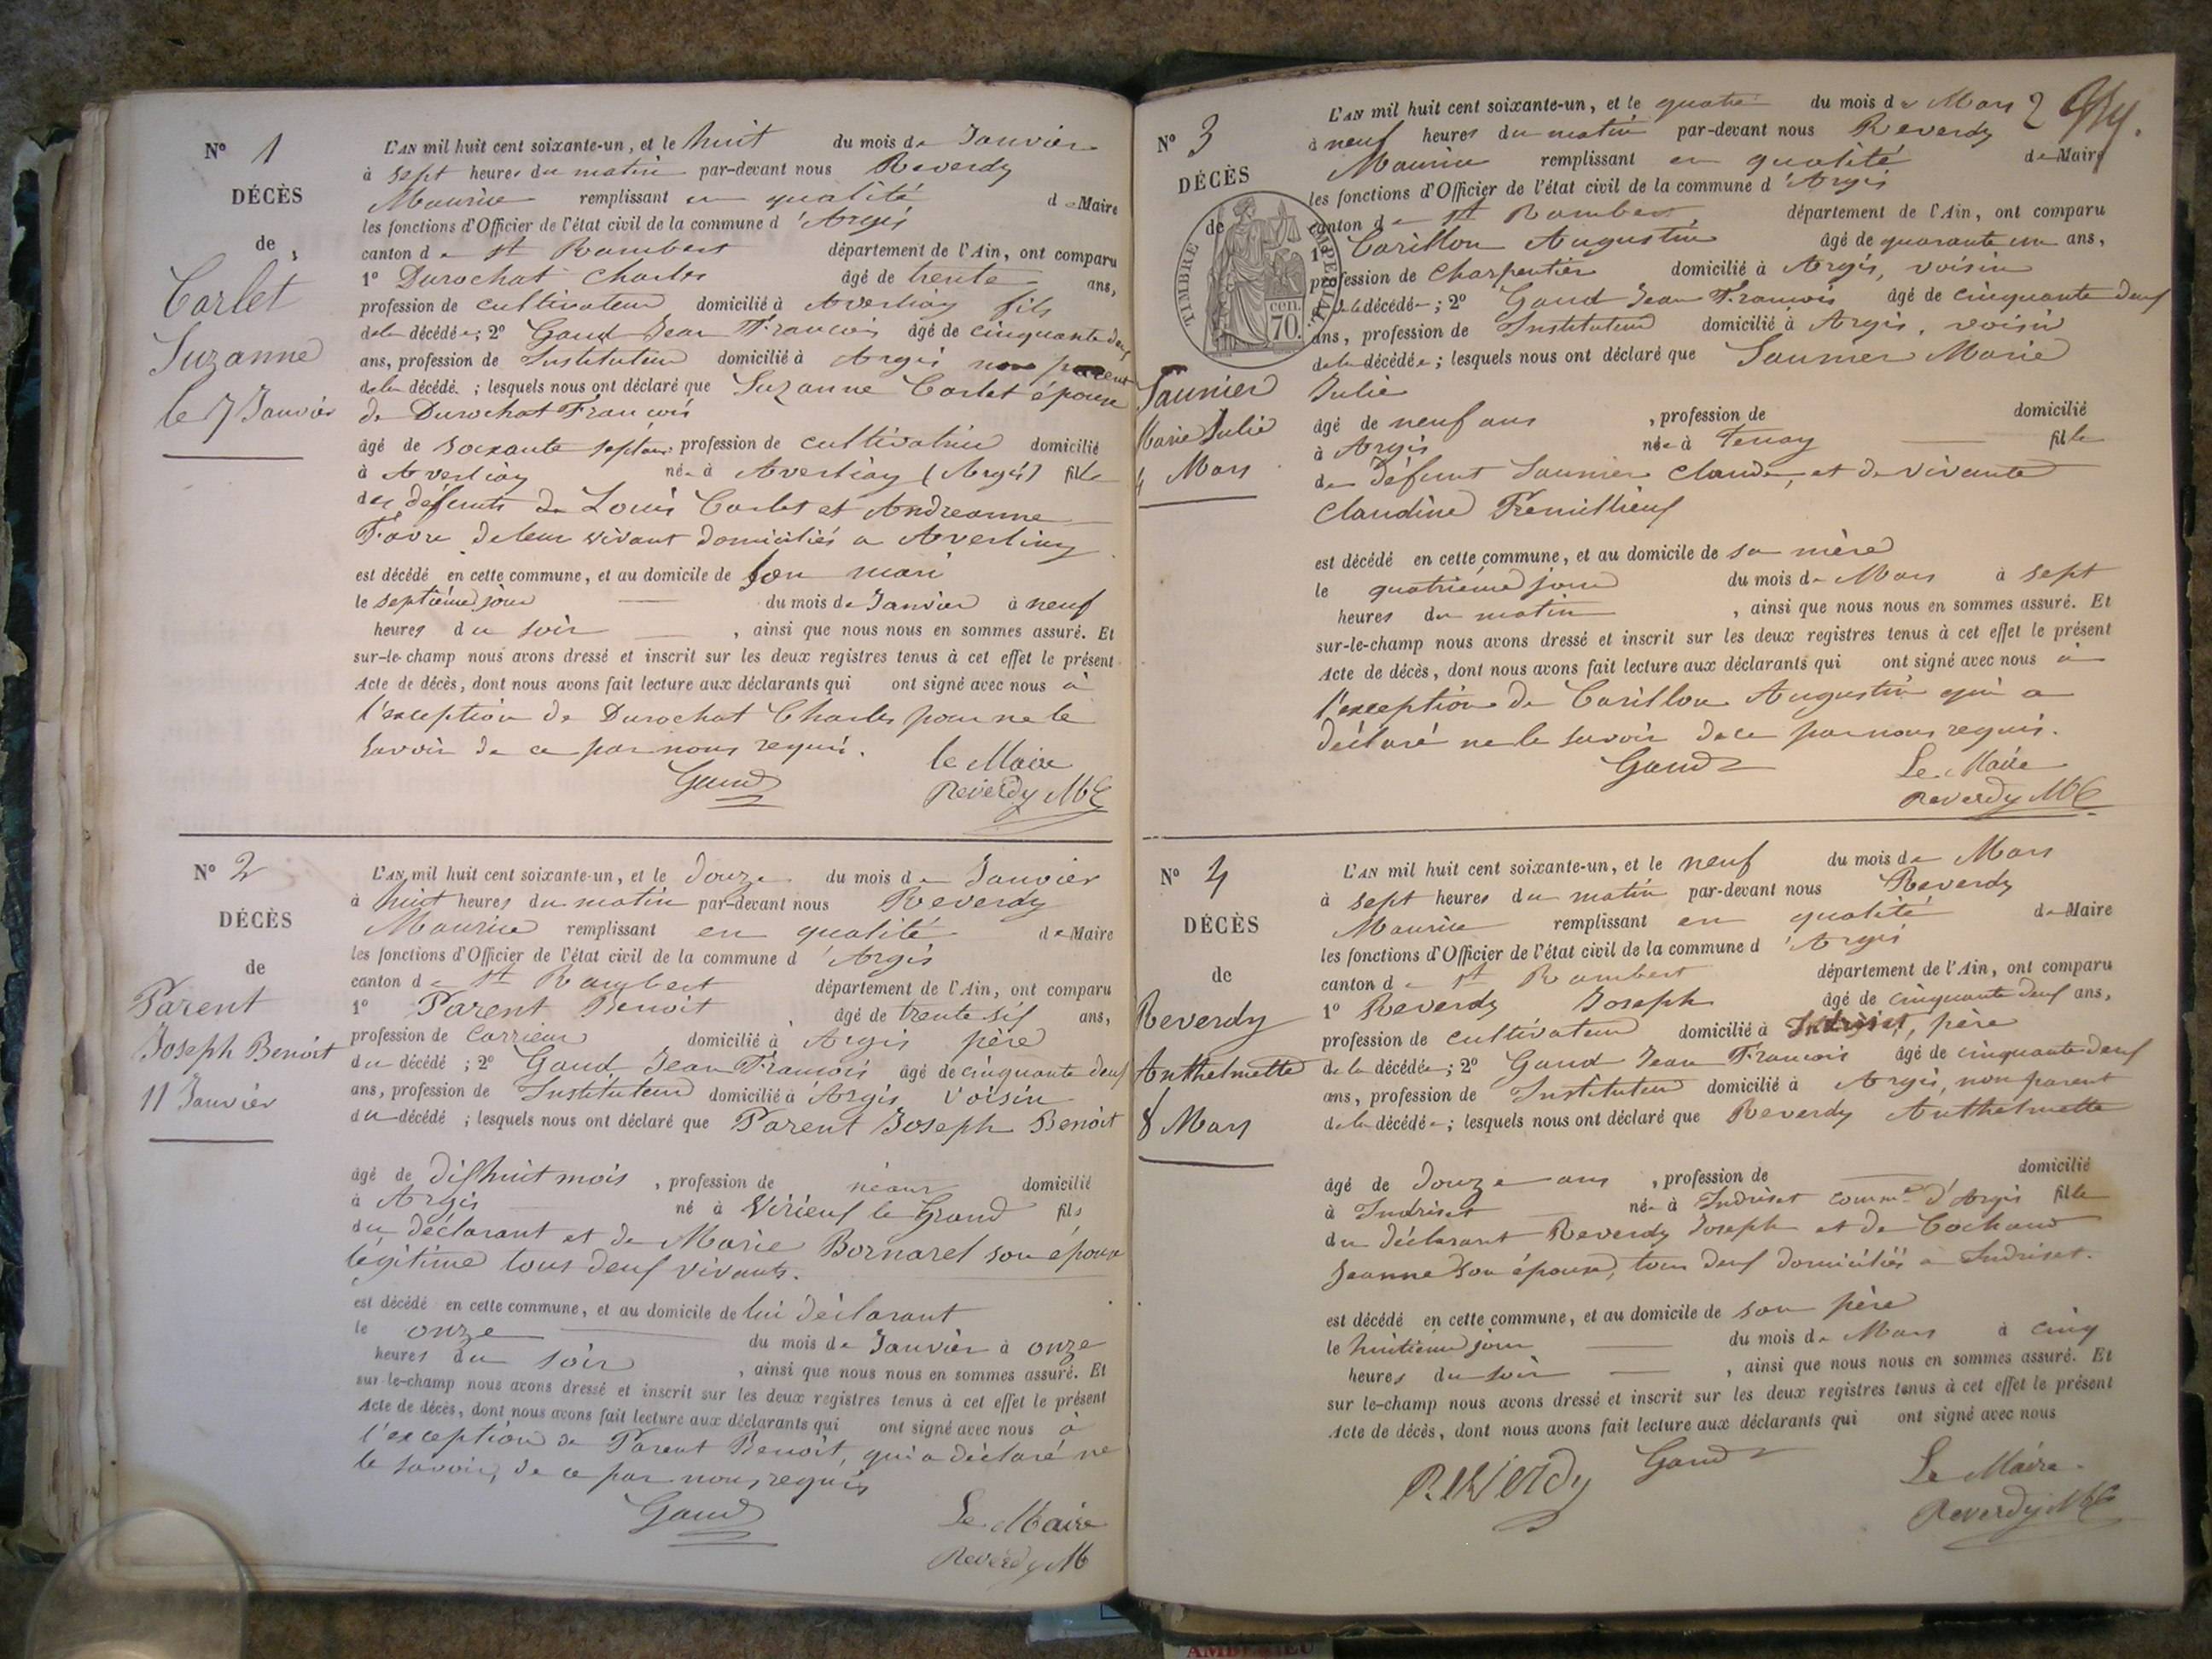 N° 1
DÉCÈS
de
Carlet
Suzanne
le 7 Janvier
L'AN mil huit cent soixante-un, et le huit du mois de Janvier
à sept heures du matin par-devant nous Reverdy
Maurice remplissant en qualité de Maire
les fonctions d'Officier de l'état civil de la commune d'Argis
canton de St Rambert département de l'Ain, ont comparu
1° Durochat Charles âgé de trente ans,
profession de cultivateur domicilié à Averliaz fils
de la décédée; 2° Gaud Jean François âgé de cinquante deux
ans, profession de Instituteur domicilié à Argis non parent
de la décédé ; lesquels nous ont déclaré que Suzanne Carlet épouse
de Durochat François
âgé de soixante sept ans profession de cultivatrice domicilié
à Averliaz née à Averliaz (Argis) fille
des défunts de Louis Carlet et Andreanne
Favre de leur vivant domiciliés a Averliaz
est décédé en cette commune, et au domicile de son mari
le septième jour du mois de Janvier à neuf
heures du soir , ainsi que nous nous en sommes assuré. Et
sur-le-champ nous avons dressé et inscrit sur les deux registres tenus à cet effet le présent
Acte de décès, dont nous avons fait lecture aux déclarants qui ont signé avec nous à
l'exception de Durochat Charles pour ne le
savoir de ce par nous requis.
le Maire
Gaud
Reverdy
N° 2
DÉCÈS
de
Parent
Joseph Benoit
11 Janvier
L'AN mil huit cent soixante-un, et le douze du mois de Janvier
à huit heures du matin par-devant nous Reverdy
Maurice remplissant en qualité de Maire
les fonctions d'Officier de l'état civil de la commune d'Argis
canton de St Rambert département de l'Ain, ont comparu
1° Parent Benoit âgé de trente six ans,
profession de Carrieur domicilié à Argis père
du décédé ; 2° Gaud Jean François âgé de cinquante deux
ans, profession de Instituteur domicilié à Argis Voisin
du décédé ; lesquels nous ont déclaré que Parent Joseph Benoit
âgé de dix huit mois , profession de néant domicilié
à Argis né à Virieux le Grand fils
du déclarant et de Marie Bornarel son épouse
légitime tous deux vivants.
est décédé en cette commune, et au domicile de lui déclarant
le onze du mois de Janvier à onze
heures du soir , ainsi que nous nous en sommes assuré. Et
sur-le-champ nous avons dressé et inscrit sur les deux registres tenus à cet effet le présent
Acte de décès, dont nous avons fait lecture aux déclarants qui ont signé avec nous à
l'exception de Parent Benoit, qui a déclaré ne
le savoir, de ce par nous requis
Gaud
Le Maire
Reverdy M
2
N° 3
DÉCÈS
de
TIMBRE IMPÉRIAL
70. cen.
Saunier
Marie Julie
4 Mars
L'AN mil huit cent soixante-un, et le quatre du mois de Mars
à neuf heures du matin par-devant nous Reverdy
Maurice remplissant en qualité de Maire
les fonctions d'Officier de l'état civil de la commune d'Argis
canton de St Rambert, département de l'Ain, ont comparu
1° Carillon Augustin âgé de quarante un ans,
profession de Charpentier domicilié à Argis, voisin
de la décédée ; 2° Gaud Jean François âgé de cinquante deux
ans, profession de Instituteur domicilié à Argis, voisin
de la décédée ; lesquels nous ont déclaré que Saunier Marie
Julie
âgé de neuf ans , profession de domicilié
à Argis née à Tenay fille
de défunt Saunier Claude, et de vivante
Claudine Premillieux
est décédé en cette commune, et au domicile de sa mère
le quatrième jour du mois de Mars à sept
heures du matin , ainsi que nous nous en sommes assuré. Et
sur-le-champ nous avons dressé et inscrit sur les deux registres tenus à cet effet le présent
Acte de décès, dont nous avons fait lecture aux déclarants qui ont signé avec nous à
l'exception de Carillon Augustin qui a
déclaré ne le savoir de ce par nous requis.
Gaud
Le Maire
Reverdy
N° 4
DÉCÈS
de
Reverdy
Anthelmette
8 Mars
L'AN mil huit cent soixante-un, et le neuf du mois de Mars
à sept heures du matin par-devant nous Reverdy
Maurice remplissant en qualité de Maire
les fonctions d'Officier de l'état civil de la commune d'Argis
canton de St Rambert département de l'Ain, ont comparu
1° Reverdy Joseph âgé de cinquante deux ans,
profession de cultivateur domicilié à Indriset, père
de la décédée ; 2° Gaud Jean François âgé de cinquante deux
ans, profession de Instituteur domicilié à Argis, non parent
de la décédée ; lesquels nous ont déclaré que Reverdy Anthelmette
âgé de douze ans , profession de domicilié
à Indriset née à Indriset comm.e d'Argis fille
du déclarant Reverdy Joseph et de Cochand
Jeanne son épouse, tous deux domiciliés a Indriset.
est décédé en cette commune, et au domicile de son père
le huitième jour du mois de Mars à cinq
heures du soir , ainsi que nous nous en sommes assuré. Et
sur le-champ nous avons dressé et inscrit sur les deux registres tenus à cet effet le présent
Acte de décès, dont nous avons fait lecture aux déclarants qui ont signé avec nous
Reverdy
Gaud
Le Maire
Reverdy